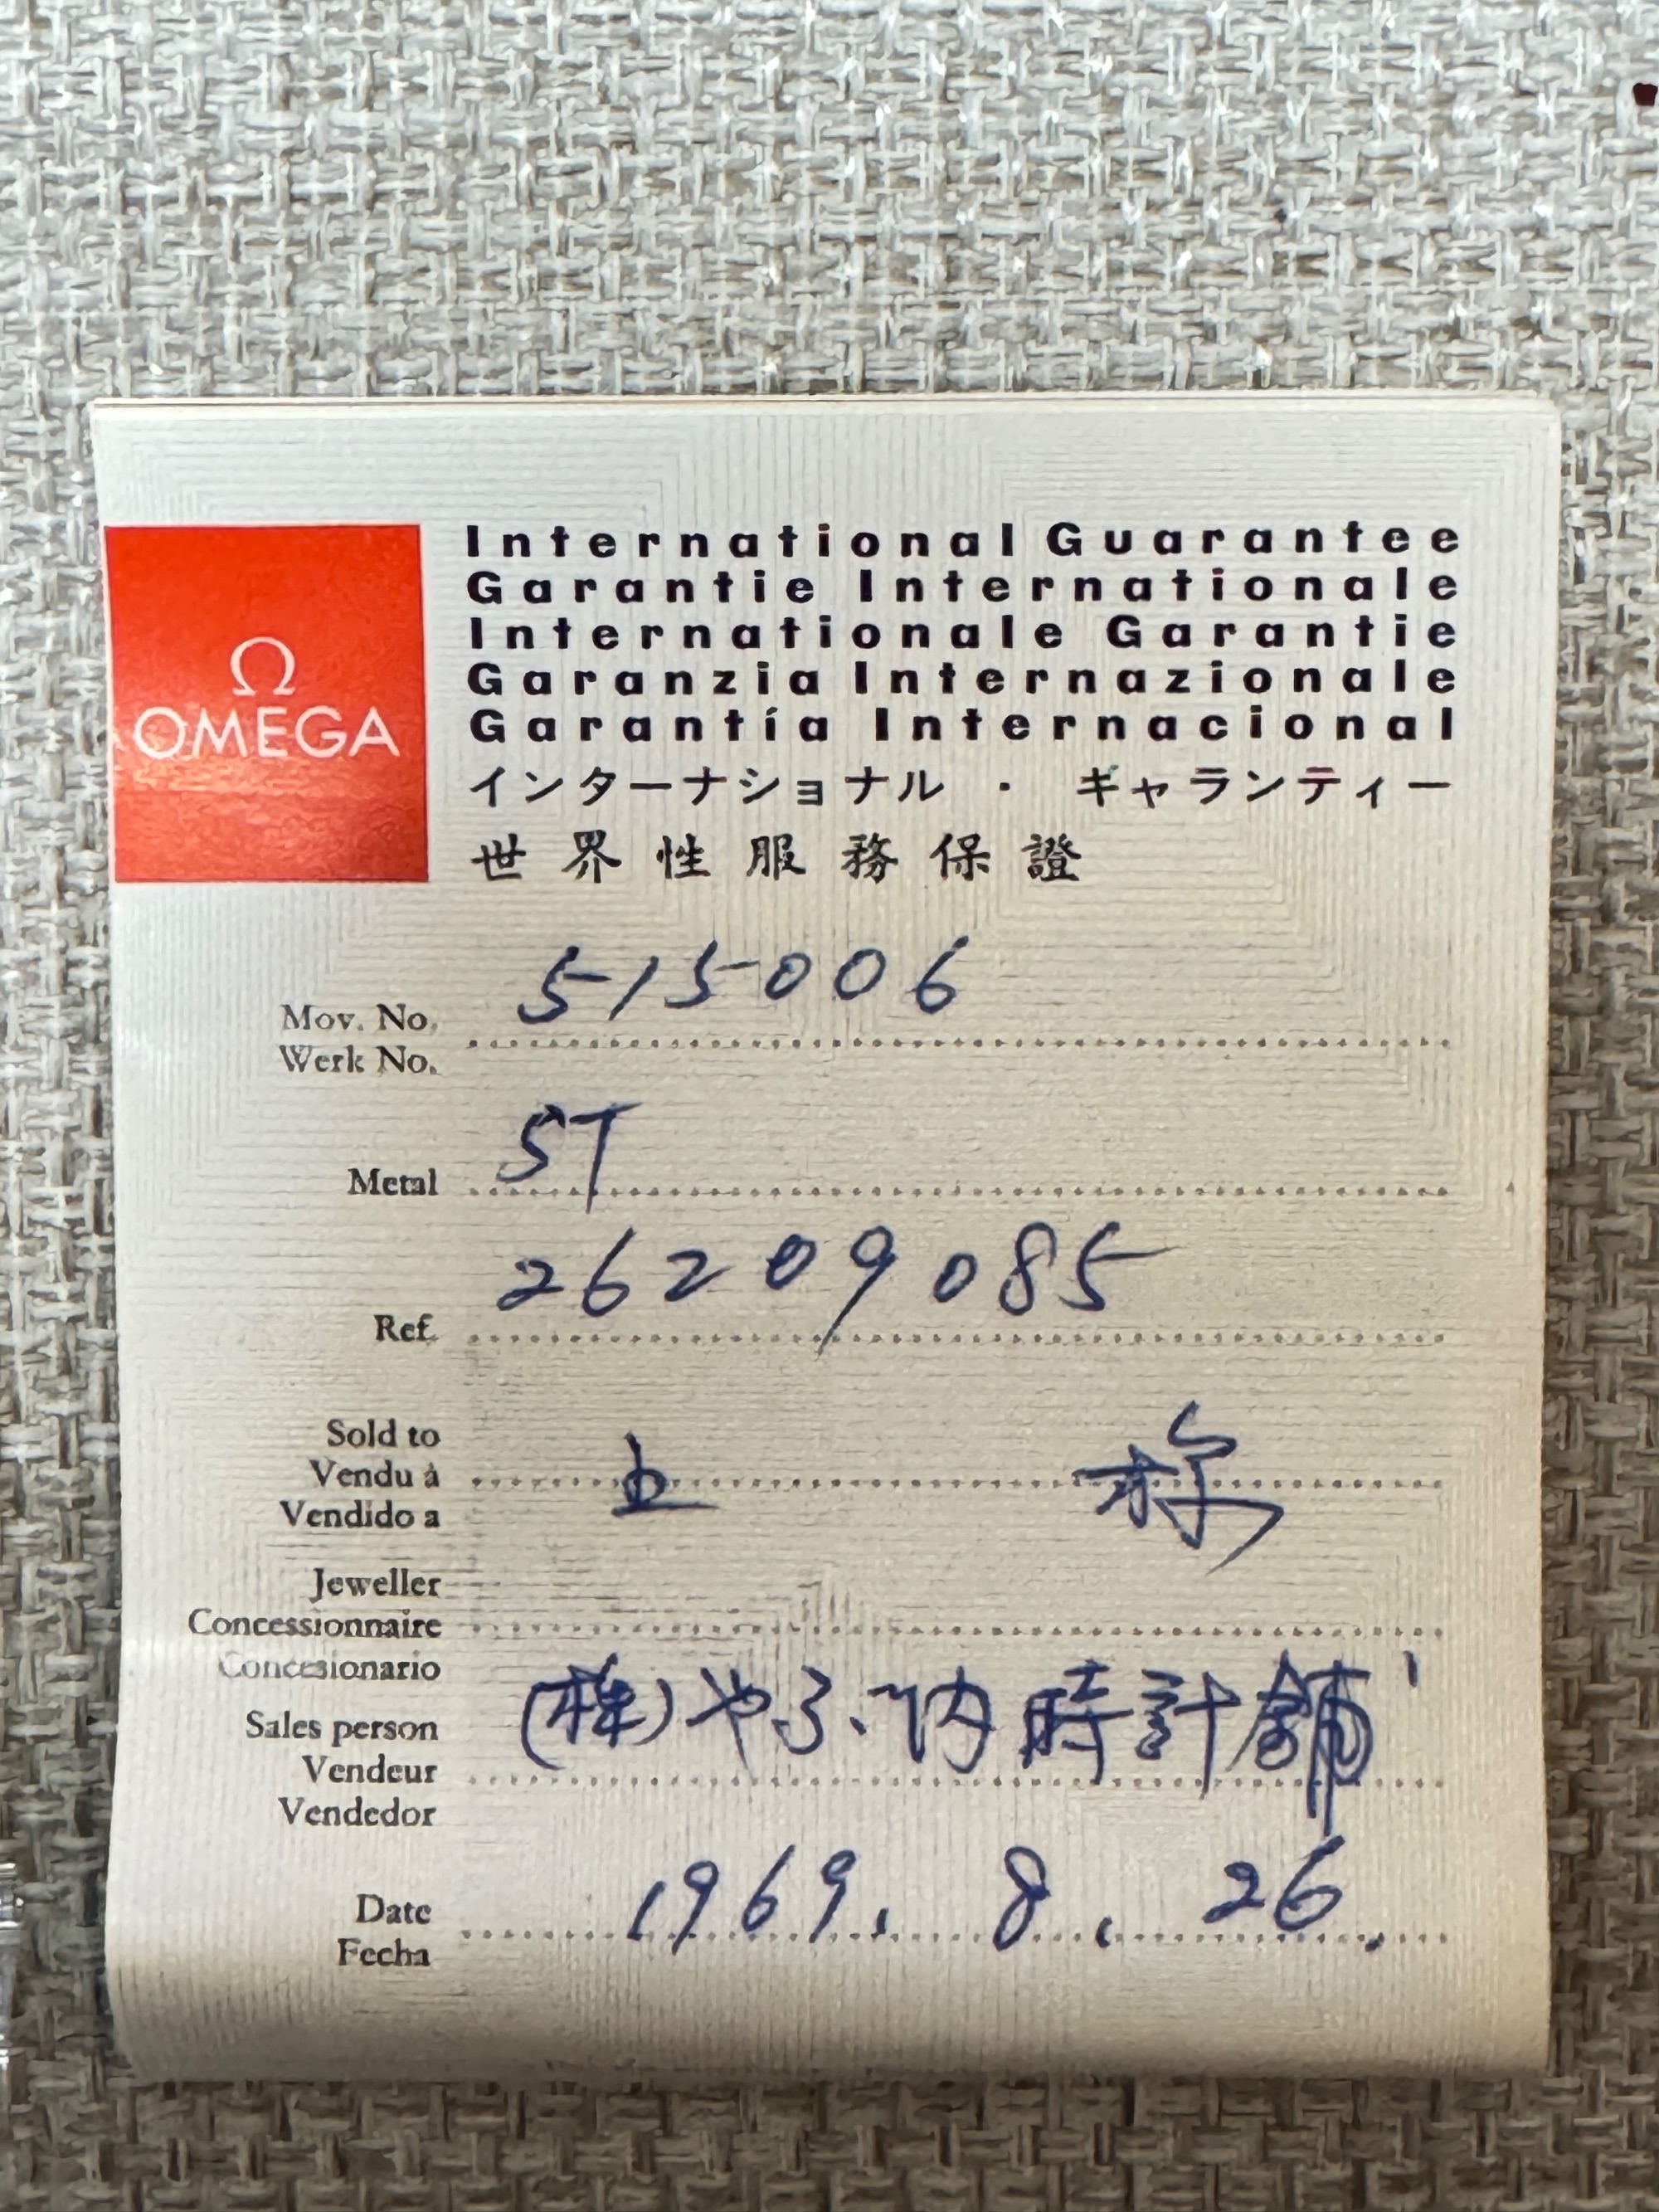 Ω
OMEGA
International Guarantee
Garantie Internationale
Internationale Garantie
Garanzia Internazionale
Garantía Internacional
インターナショナル ・ ギャランティー
世界性服務保證
Mov. No. 515006
Werk No.
Metal ST
Ref. 26209085
Sold to
Vendu à 上 様
Vendido a
Jeweller
Concessionnaire
Concesionario
Sales person (株)やぶ内時計舗
Vendeur
Vendedor
Date 1969. 8. 26.
Fecha